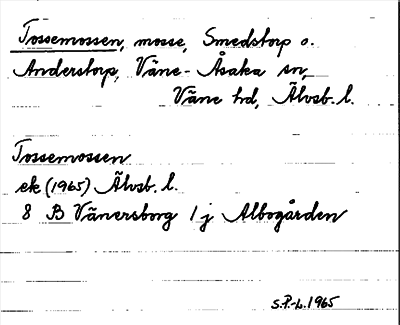 Tossemossen, mosse, Smedstorp o.
Anderstorp, Väne-Åsaka sn,
Väne hd, Älvsb. l.
Tossemossen
ek (1965) Älvsb. l.
8 B Vänersborg 1 j Albogården
S.P.-L. 1965